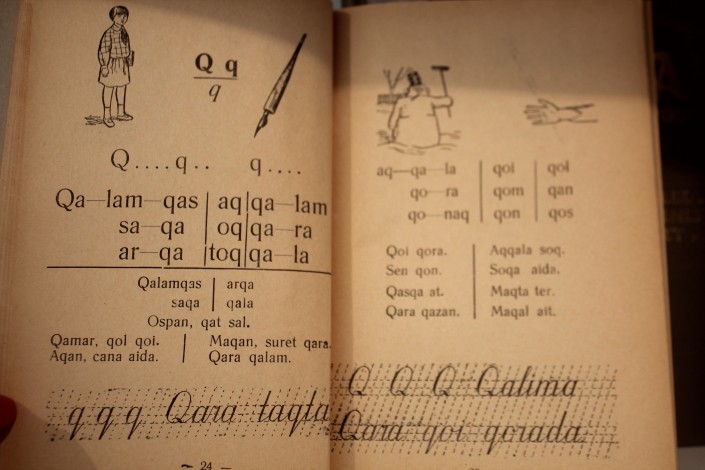 Q q
q
Q . . . . q . . q . . . .
Qa—lam—qas | aq | qa—lam
sa—qa | oq | qa—ra
ar—qa | toq | qa—la
Qalamqas | arqa
saqa | qala
Ospan, qat sal.
Qamar, qol qoi. | Maqan, suret qara.
Aqan, cana aida. | Qara qalam.
q q q Qara taqta
— 24 —
aq—qa—la | qoi | qol
qo—ra | qom | qan
qo—naq | qon | qos
Qoi qora. | Aqqala soq.
Sen qon. | Soqa aida.
Qasqa at. | Maqta ter.
Qara qazan. | Maqal ait.
Q Q Q Qalima
Qara qoi qorada.